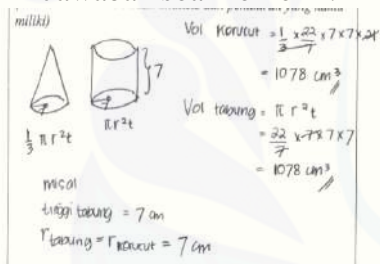 miliki)
Vol Kerucut = 1/3 x 22/7 x 7 x 7 x 21
= 1078 cm³
7
Vol tabung = π r² t
= 22/7 x 7 x 7 x 7
= 1078 cm³
1/3 π r² t
π r² t
misal
tinggi tabung = 7 cm
r tabung = r kerucut = 7 cm